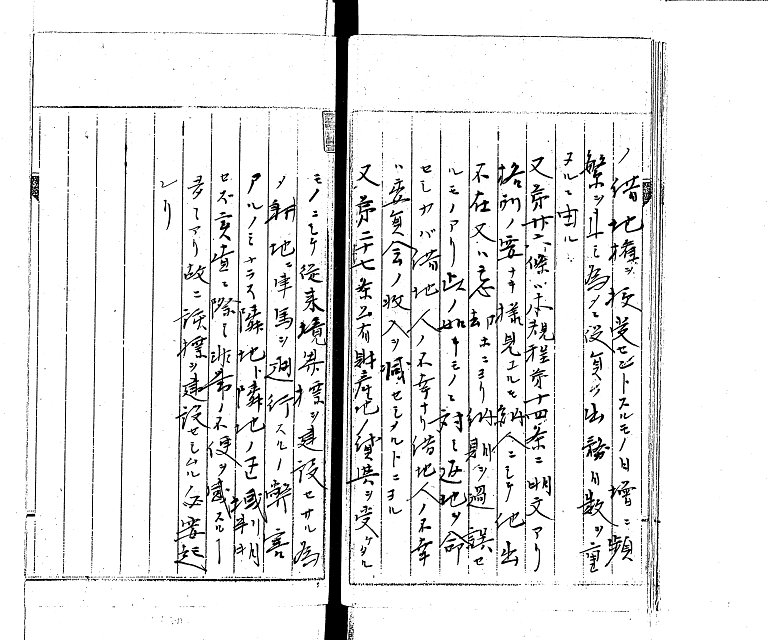 ノ借地権ヲ授受セントスルモノ日増ニ頻
繁ヲ且ミ為メニ役員ノ出務日数ヲ重
ヌルニ由ル
又第廿六條ハ本規程第十四条ニ明文アリ
格別ノ要ナキ様見エルモ納人ニシテ他出
不在又ハ忘去等ニヨリ納期ヲ過誤セ
ルモノアリ此ノ如キモノニ対シ返地ヲ命
セシカバ借地人ノ不幸ナリ借地人ノ不幸
ハ委員会ノ収入ヲ減セシメルトニヨル
又第二十七条共有財産地ノ貸与ヲ受ケタル
モノニシテ従来境界標ヲ建設セサル為
メ耕地ニ車馬ヲ通行スルノ弊害
アルノミナラス隣地ト隣地ノ区域判明
セズ実査ニ際シ非常ノ不便ヲ感スルー
多々アリ故ニ該標ヲ建設セシムル必要起
レリ